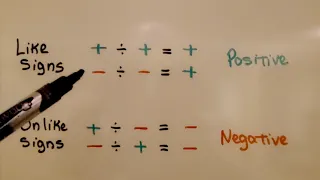 Like + ÷ + = + Positive
Signs - ÷ - = +
Unlike + ÷ - = - Negative
Signs - ÷ + = -